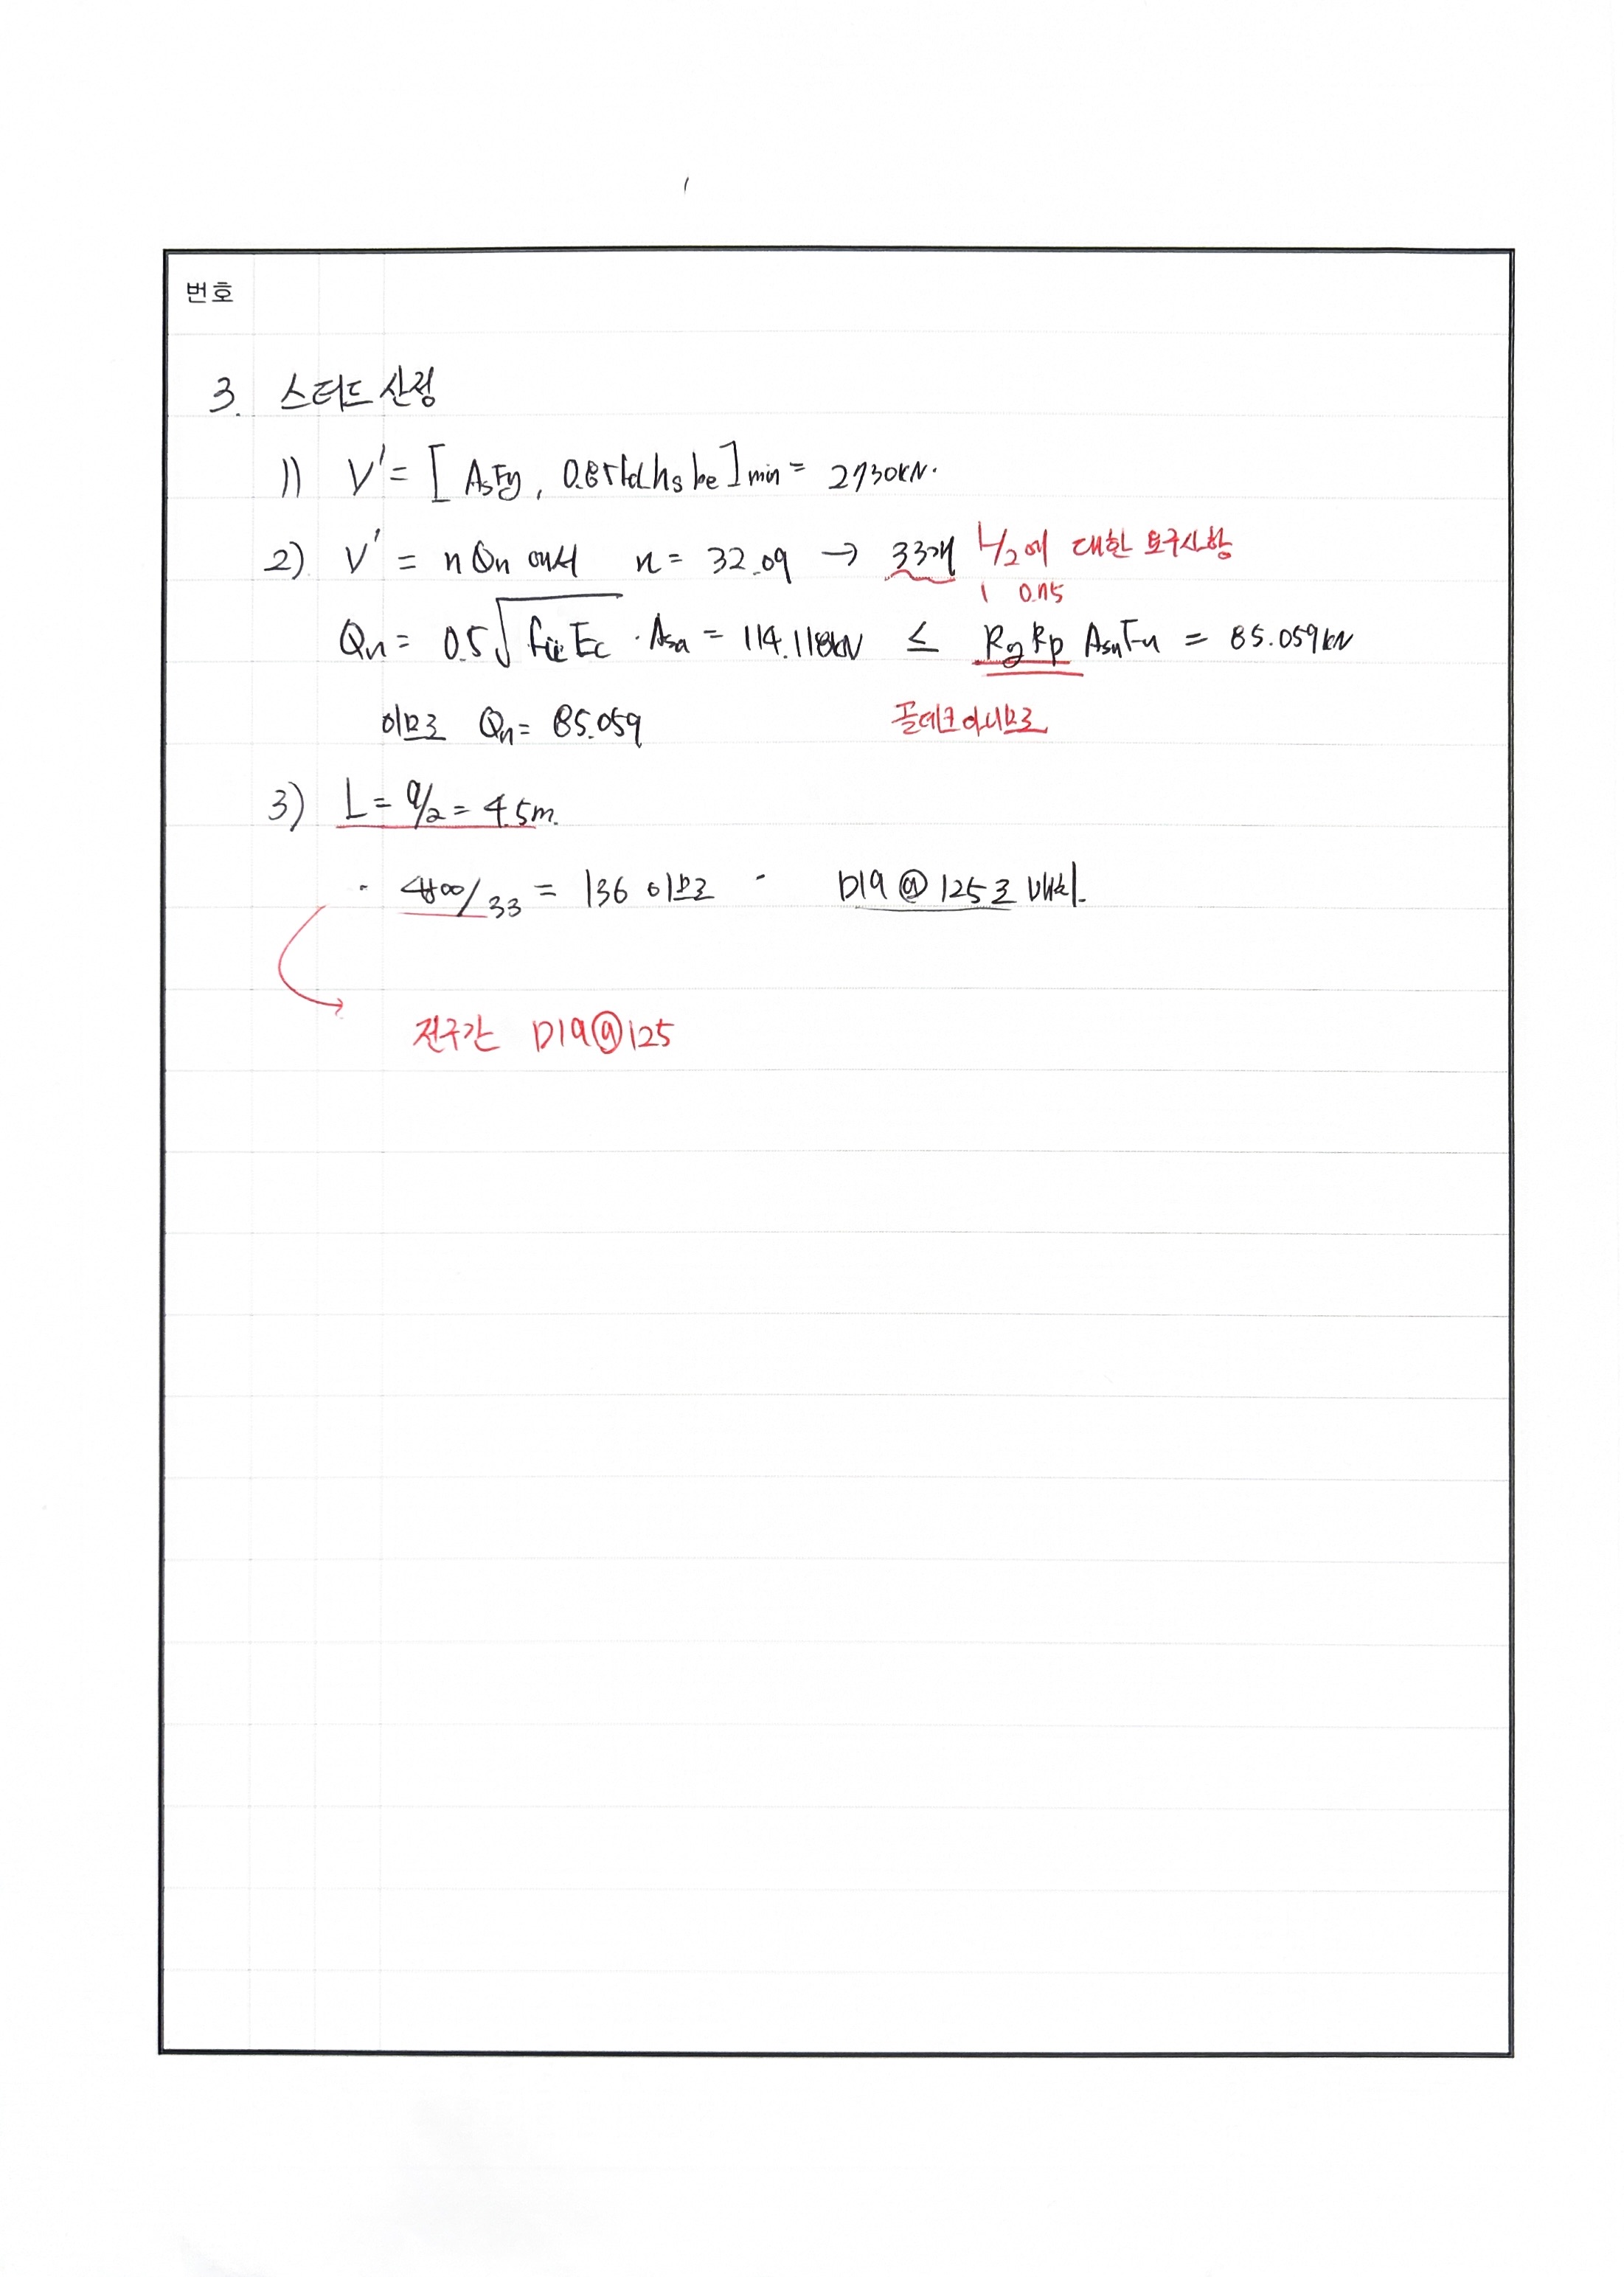 번호
3. 스터드 산정
1) V' = [ AsFy, 0.85fck hs be ] min = 2730kN.
2) V' = nQn 에서 n = 32.09 → 33개 L/2에 대한 요구사항
1 0.75
Qn = 0.5√fck Ec · Asa = 114.118kN ≤ Rg Rp Asa Fu = 85.059kN
이므로 Qn = 85.059 골데크 아니므로
3) L = 9/2 = 4.5m.
· 4500/33 = 136 이므로 - D19 @ 125로 배치.
전구간 D19@125